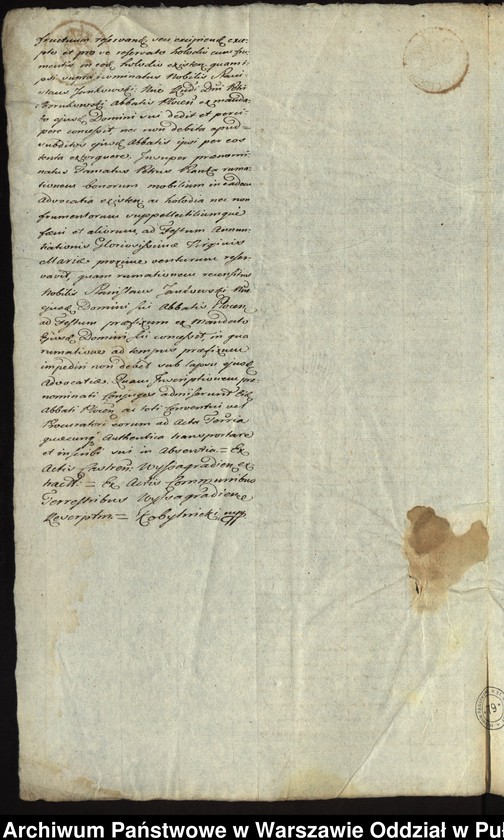 fructuum reservand seu excipiend exce-
pto et pro se reservato holodio cum fru-
mentis in eod holodio existen quam i-
psi Nobilis Stani-
slaus Jankowski Abbatis Plocen ex manda-
to ejusd Domini sui dedit et perci-
pere concessit nec non debita apud
subditos ejusd Abbatis ipsi per eos
tenta extorquere. Insuper prænomi-
natus Famatus Petrus ruma-
tionem bonorum mobilium in eadem
Advocatia existen ac holodia nec non
frumentorum suppellectiliumque
fæni et aliorum, ad Festum Annun-
tiationis Gloriosissimæ Virginis
Mariæ proxime venturum reser-
vavit, quam rumationem
Nobilis Stanislaus Jankowski
ejusd Domini sui Abbatis Plocen
ad Festum præfixum ex Mandato
ejusd Domini sui concessit, in qua
rumatione ad tempus præfixum
impediri non debet sub lapsu ejusd
Advocatiæ. Quam Inscriptionem præ-
nominati Conjuges admiserunt
Abbati Plocen ac toti Conventui vel
Procuratori eorum ad Acta Terria
quæcunq Authentica transportare
et inscribi sui in Absentia = Ex
Actis Castren Wyssogradien ex
tractt = Ex Actis Communibus
Terrestribus Wyssogradien
Rescriptm = Kobylnicki mpp
19
Archiwum Państwowe w Warszawie Oddział w Pu